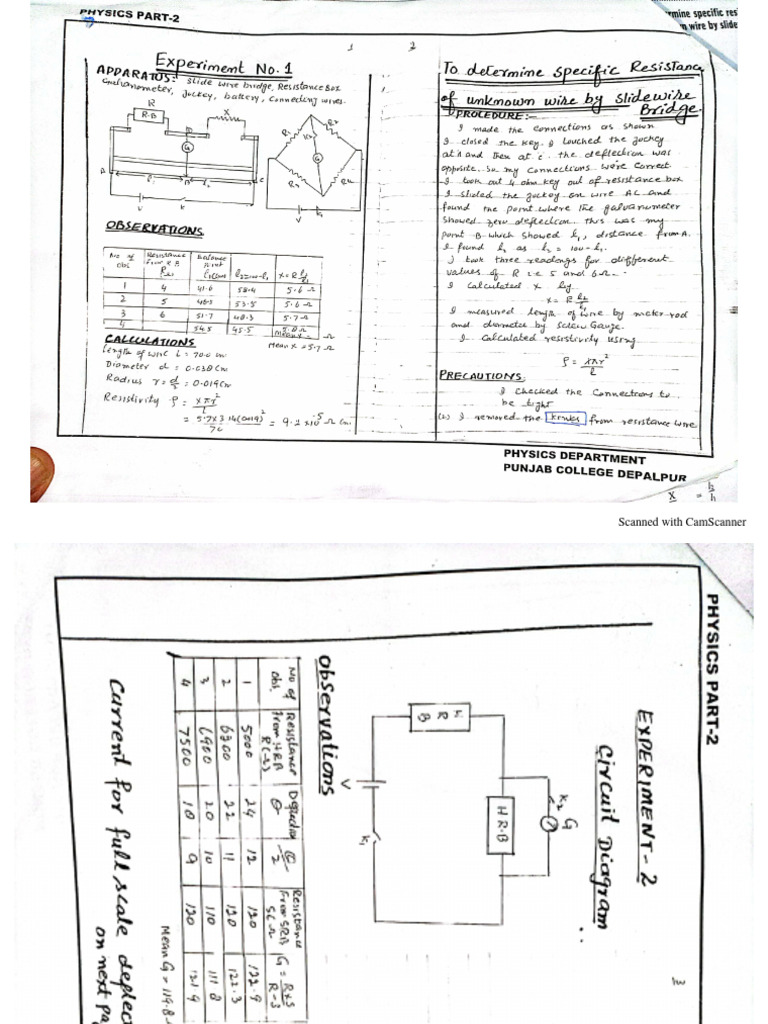 PHYSICS PART-2
rmine specific res
n wire by slide
1
2
Experiment No. 1
APPARATUS:- slide wire bridge, Resistance Box
Galvanometer, Jockey, battery, connecting wires.
R
R-B
X
G
A
B
C
V
K
OBSERVATIONS
No of obs | Resistance from R.B | Balance Point l₁(cm) | l₂=100-l₁ | X=R l₂/l₁
1 | 4 | 41.6 | 58.4 | 5.6 Ω
2 | 5 | 53.5 | 5.6 Ω
3 | 6 | 51.7 | 48.3 | 5.7 Ω
4 | 54.5 | 45.5 | 5.8 Ω
Mean X = 5.7 Ω
CALCULATIONS
Length of wire L = 70.0 cm
Diameter d = 0.038 cm
Radius r = d/2 = 0.019 cm
Resistivity ρ = Xπr²/L
= 5.7x3.14(0.019)²/70 = 9.2x10⁻⁵ Ω cm
To determine specific Resistance
of unknown wire by slidewire
Bridge.
PROCEDURE:-
I made the connections as shown
I closed the key. I touched the jockey
at A and then at C. the deflection was
opposite. So my connections were correct
I took out 4 ohm key out of resistance box
I slided the jockey on wire AC and
found the point where the galvanometer
showed zero deflection. this was my
point B which showed l₁, distance from A.
I found l₂ as l₂ = 100 - l₁.
I took three readings for different
values of R i.e 5 and 6 Ω.
I calculated X by
X = R l₂/l₁
I measured length of wire by meter rod
and diameter by screw Gauge.
I calculated resistivity using
ρ = Xπr²/L
PRECAUTIONS:
I checked the connections to
be tight
(2) I removed the kinks from resistance wire
PHYSICS DEPARTMENT
PUNJAB COLLEGE DEPALPUR
Scanned with CamScanner
PHYSICS PART-2
EXPERIMENT-2
Circuit Diagram
K₂ G
H R.B
R B
V
K₁
Observations
No of obs. | Resistance from HRB | Deflection θ | θ/2 | Resistance From SRB S Ω | G = RxS/R-S
1 | 5000 | 24 | 12 | 120 | 122.9
2 | 6300 | 22 | 11 | 120 | 122.3
3 | 6900 | 20 | 10 | 110 | 111.8
4 | 7500 | 18 | 9 | 120 | 121.9
Mean G = 119.8
Current for full scale deflec
on next pa